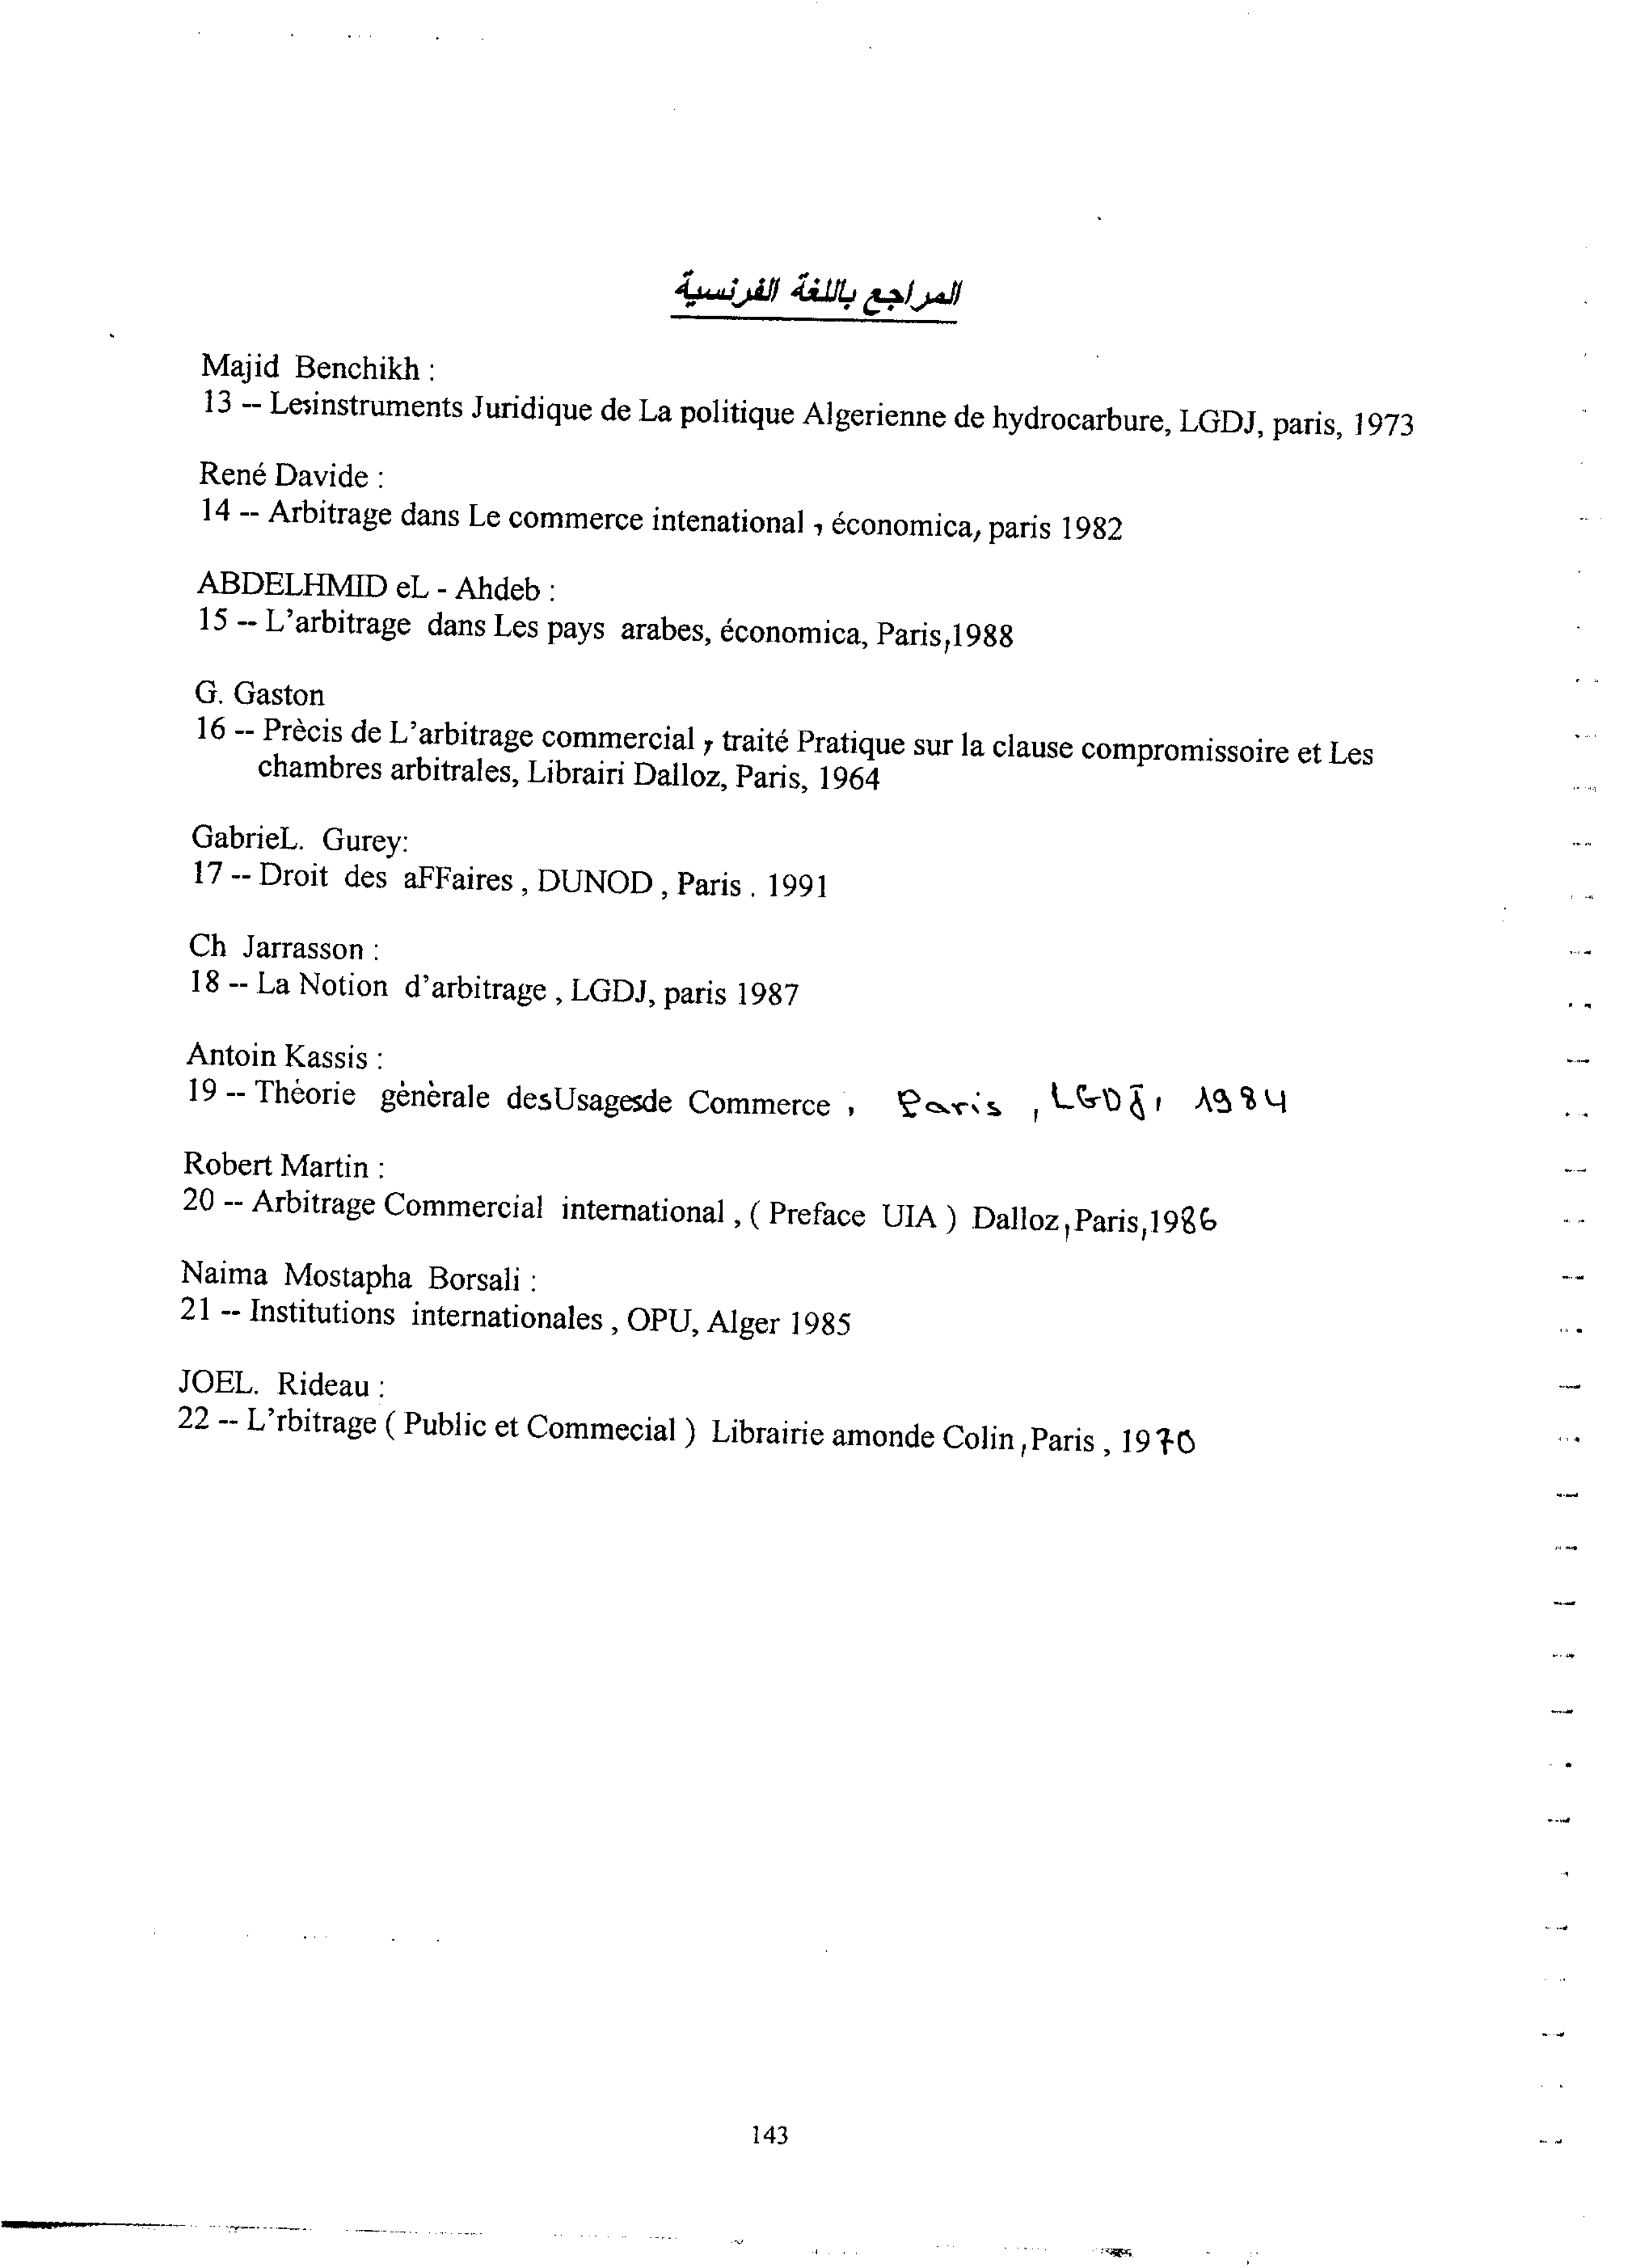 المراجع باللغة الفرنسية
Majid Benchikh :
13 -- Lesinstruments Juridique de La politique Algerienne de hydrocarbure, LGDJ, paris, 1973
René Davide :
14 -- Arbitrage dans Le commerce intenational , économica, paris 1982
ABDELHMID eL - Ahdeb :
15 -- L'arbitrage dans Les pays arabes, économica, Paris,1988
G. Gaston
16 -- Prècis de L'arbitrage commercial , traité Pratique sur la clause compromissoire et Les
chambres arbitrales, Librairi Dalloz, Paris, 1964
GabrieL. Gurey:
17 -- Droit des aFFaires , DUNOD , Paris . 1991
Ch Jarrasson :
18 -- La Notion d'arbitrage , LGDJ, paris 1987
Antoin Kassis :
19 -- Théorie gènèrale desUsagesde Commerce , Paris , LGDJ, 1984
Robert Martin :
20 -- Arbitrage Commercial international , ( Preface UIA ) Dalloz,Paris,1986
Naima Mostapha Borsali :
21 -- Institutions internationales , OPU, Alger 1985
JOEL. Rideau :
22 -- L'rbitrage ( Public et Commecial ) Librairie amonde Colin,Paris , 1970
143